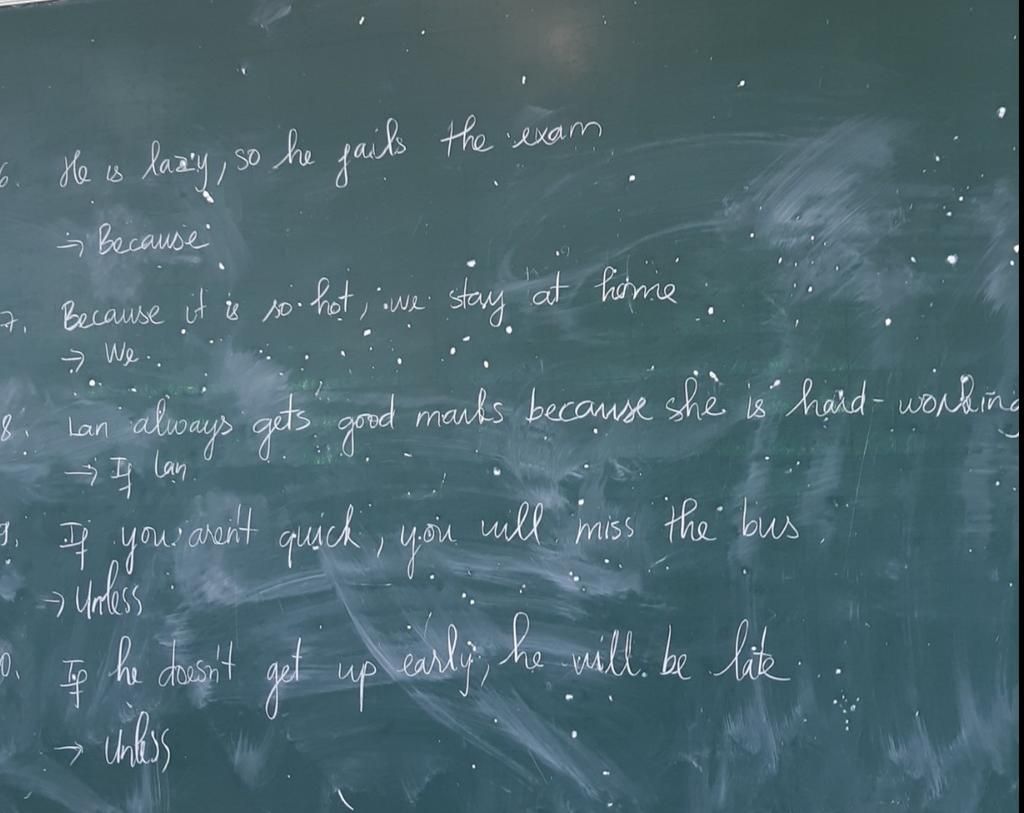 6. He is lazy, so he fails the exam
→ Because
7. Because it is so hot, we stay at home
→ We
8. Lan always gets good marks because she is hard-working
→ If Lan
9. If you aren't quick, you will miss the bus
→ Unless
0. If he doesn't get up early, he will be late
→ Unless